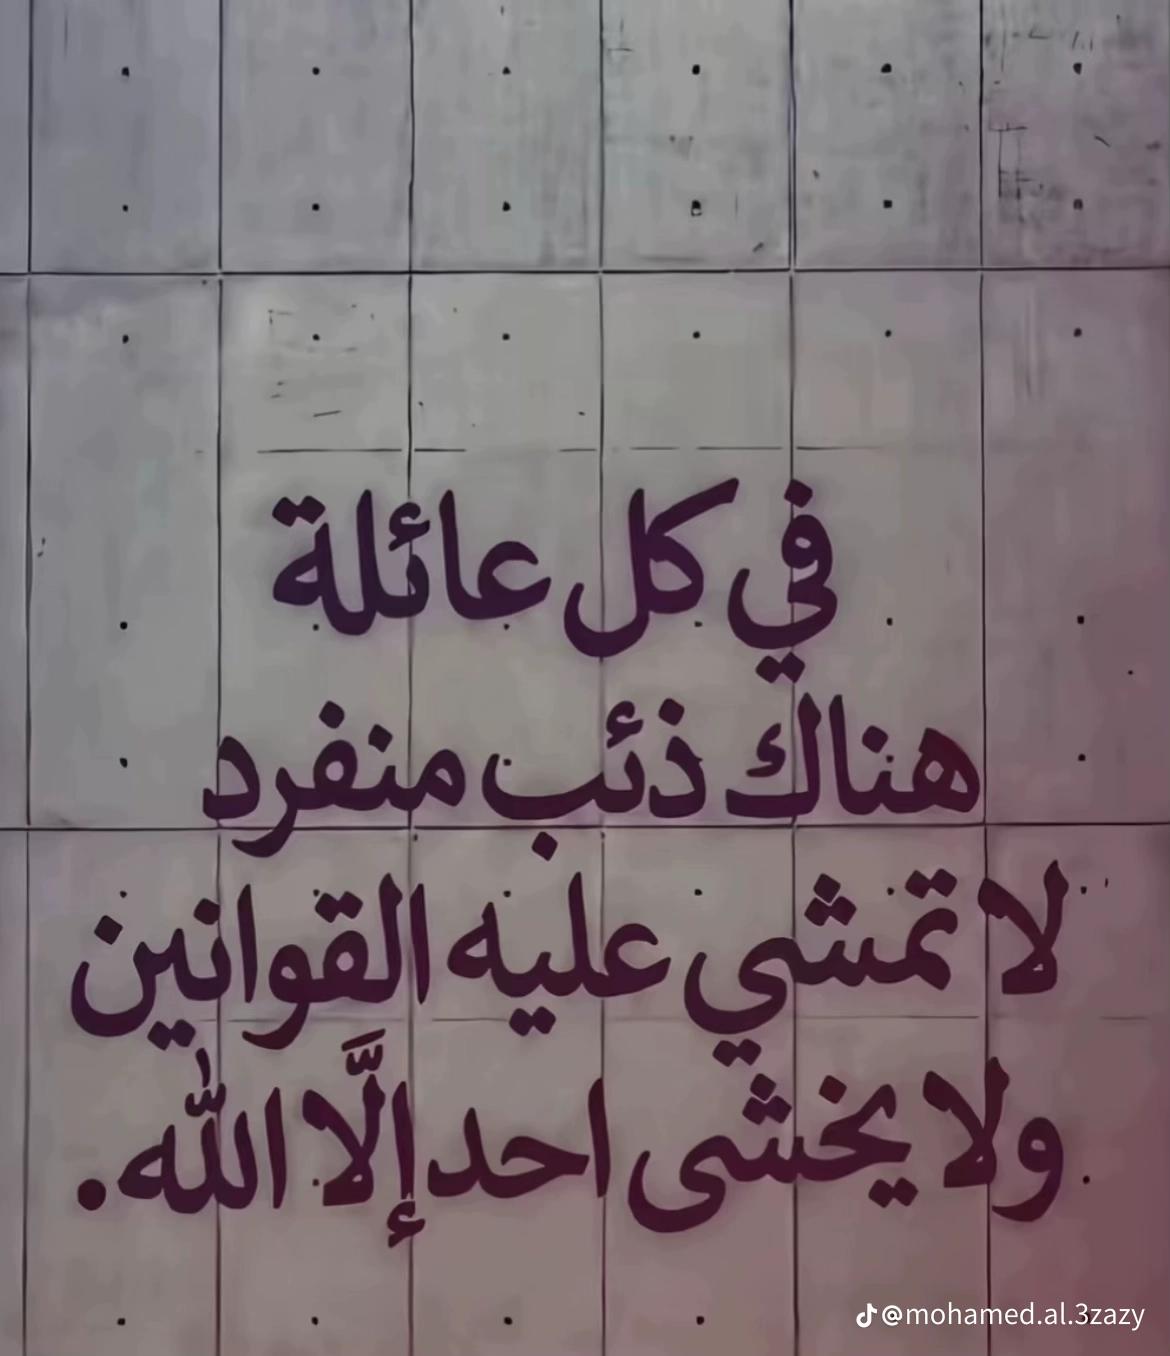 في كل عائلة
هناك ذئب منفرد
لا تمشي عليه القوانين
ولا يخشى احد إلَّا اللّٰه.
@mohamed.al.3zazy